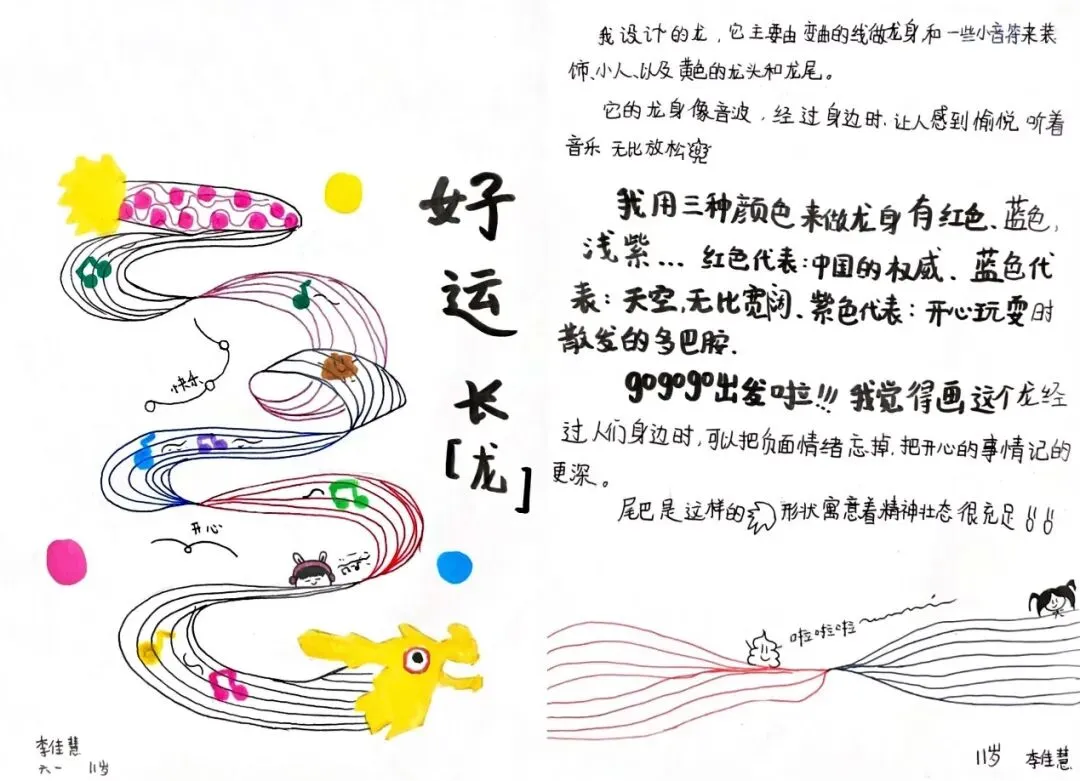 好
运
长
[龙]
快乐
开心
李佳慧
六一 11岁
我设计的龙，它主要由弯曲的线做龙身，和一些小音符来装
饰、小人、以及黄色的龙头和龙尾。
它的龙身像音波，经过身边时，让人感到愉悦 听着
音乐 无比放松
我用三种颜色来做龙身有红色、蓝色，
浅紫... 红色代表：中国的权威、蓝色代
表：天空，无比宽阔、紫色代表：开心玩耍时
散发的多巴胺.
gogogo出发啦!!! 我觉得画这个龙经
过人们身边时，可以把负面情绪忘掉，把开心的事情记的
更深。
尾巴是这样的 形状寓意着精神状态很充足
啦啦啦
11岁 李佳慧